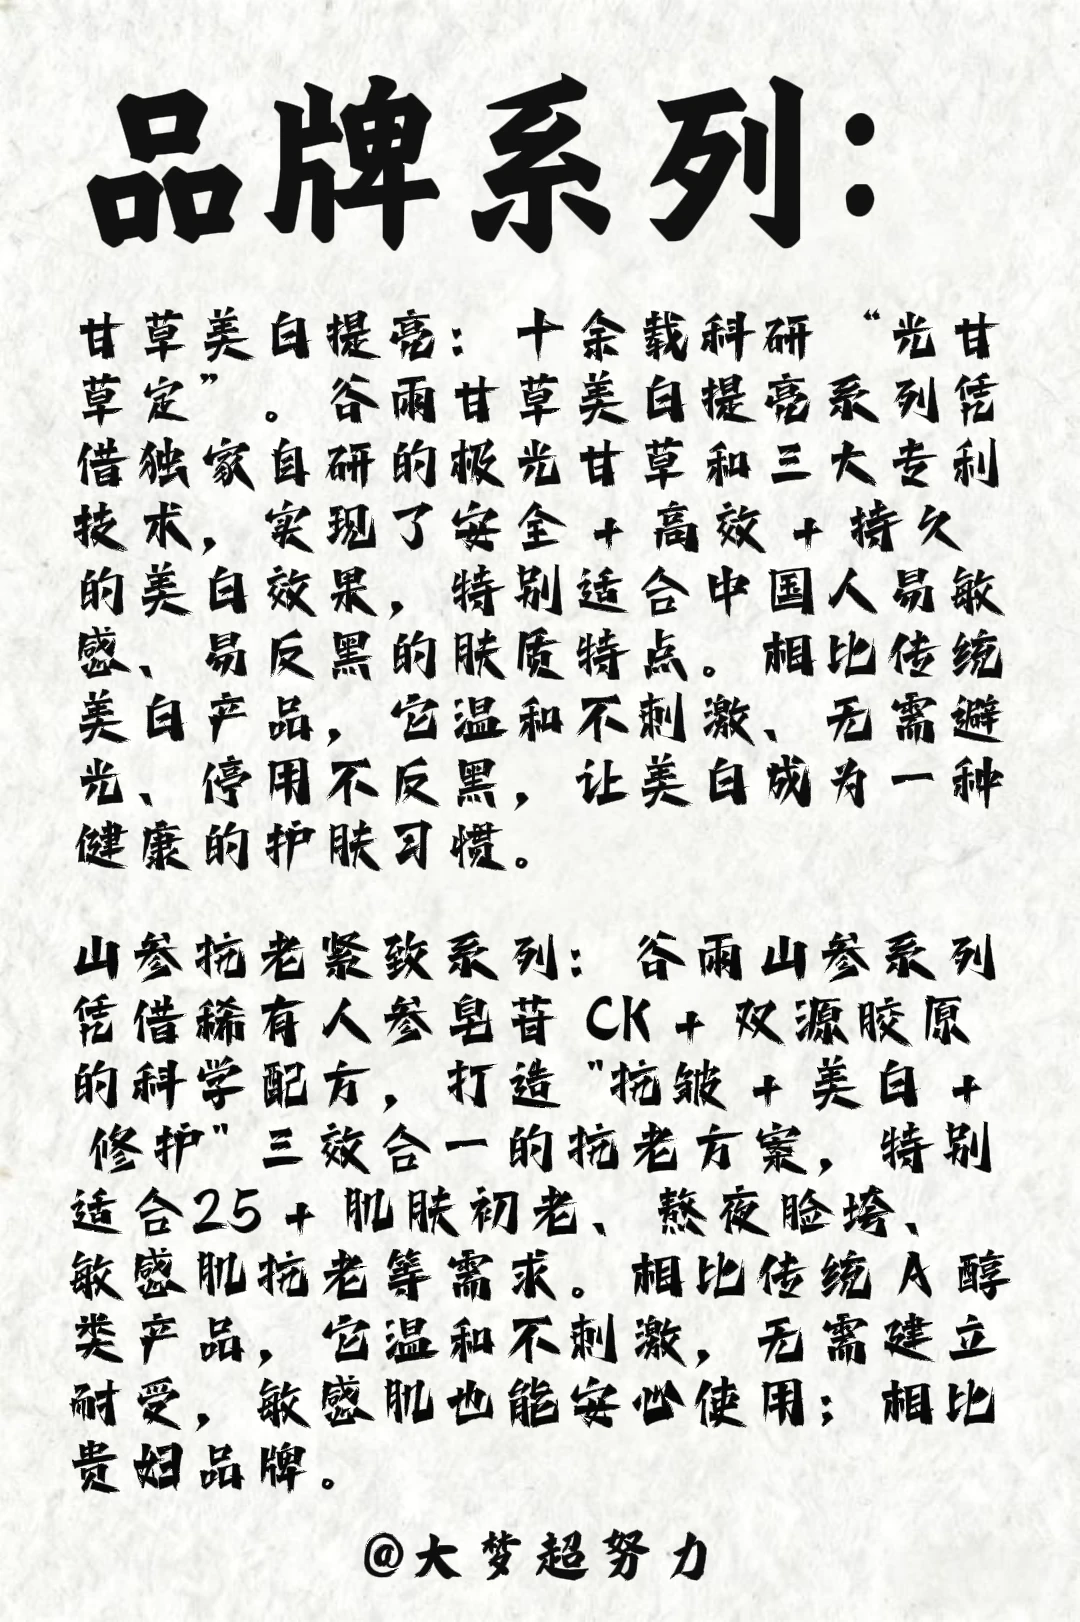 品牌系列：
甘草美白提亮：十余载科研“光甘
草定”。谷雨甘草美白提亮系列凭
借独家自研的极光甘草和三大专利
技术，实现了安全 + 高效 + 持久
的美白效果，特别适合中国人易敏
感、易反黑的肤质特点。相比传统
美白产品，它温和不刺激、无需避
光、停用不反黑，让美白成为一种
健康的护肤习惯。
山参抗老紧致系列：谷雨山参系列
凭借稀有人参皂苷 CK + 双源胶原
的科学配方，打造"抗皱 + 美白 +
修护"三效合一的抗老方案，特别
适合25 + 肌肤初老、熬夜脸垮、
敏感肌抗老等需求。相比传统 A 醇
类产品，它温和不刺激，无需建立
耐受，敏感肌也能安心使用；相比
贵妇品牌。
@大梦超努力